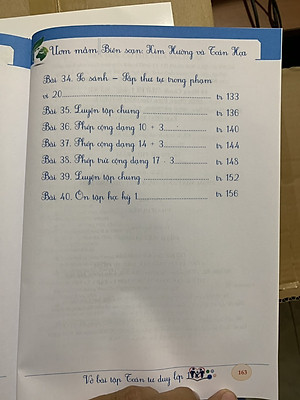 Ươm mầm Biên soạn: Kim Hương và Toán Học
Bài 34. So sánh – Sắp thứ tự trong phạm
vi 20 tr 133
Bài 35. Luyện tập chung tr 136
Bài 36. Phép cộng dạng 10 + 3 tr 140
Bài 37. Phép cộng dạng 14 + 3 tr 144
Bài 38. Phép trừ cộng dạng 17 - 3 tr 148
Bài 39. Luyện tập chung tr 152
Bài 40. Ôn tập học kỳ 1 tr 156
Vở bài tập Toán tư duy lớp
163